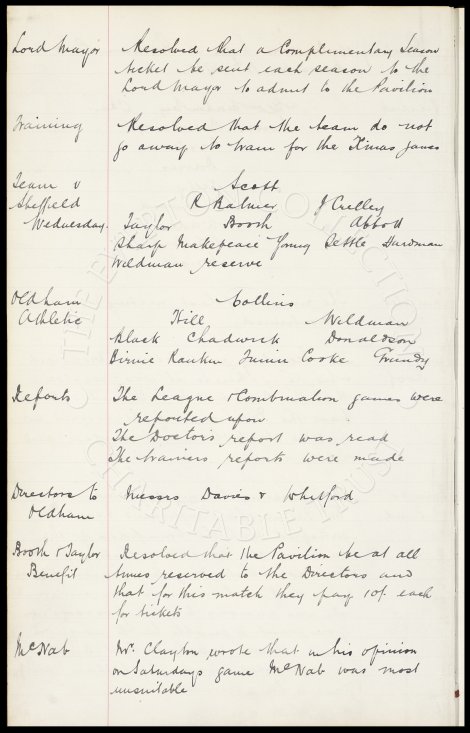 Lord Mayor Resolved that a Complimentary Season
ticket be sent each season to the
Lord Mayor to admit to the Pavilion
Training Resolved that the team do not
go away to train for the Xmas games
Team v Scott
Sheffield R Balmer J Crelley
Wednesday. Taylor Booth Abbott
Sharp Makepeace Young Settle Hardman
Wildman reserve
Oldham Collins
Athletic Hill Wildman
Black Chadwick Donaldson
Birnie Rankin Cooke Grundy
Reports The League & Combination games were
reported upon
The Doctor's report was read
The trainers reports were made
Directors to Messrs Davies & Whitford
Oldham
Booth & Taylor Resolved that the Pavilion be at all
Benefit times reserved to the Directors and
that for this match they pay 10/- each
for tickets
McNab Mr. Clayton wrote that in his opinion
on Saturdays game McNab was most
unsuitable
THE EVERTON COLLECTION
CHARITABLE TRUST